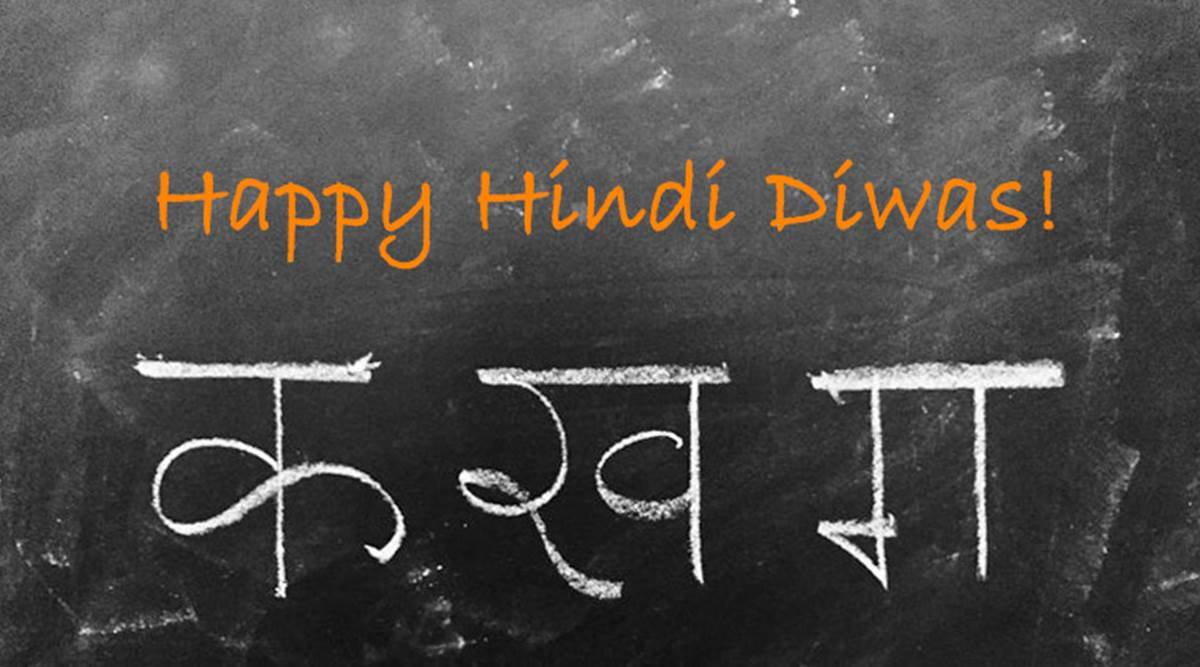 Happy Hindi Diwas!
क ख ग